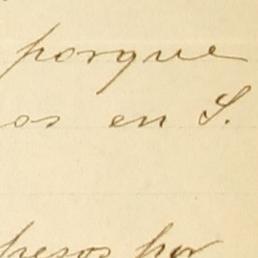 porque
os en S.
pesos por